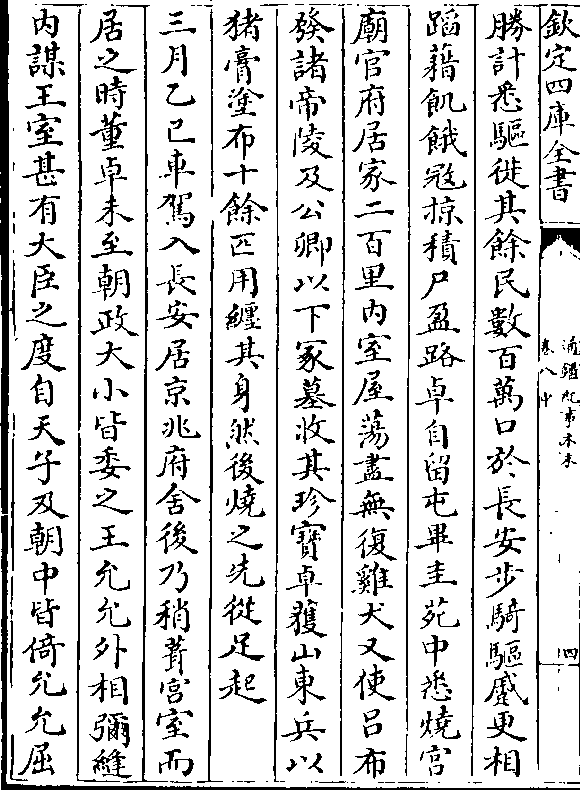 欽定四庫全書
通鑑紀事本末
卷八中
四
勝計悉驅徙其餘民數百萬口於長安步騎驅蹙更相
蹈藉飢餓冦掠積尸盈路卓自留屯畢圭苑中悉燒宫
廟官府居家二百里内室屋蕩盡無復雞犬又使吕布
發諸帝陵及公卿以下冢墓收其珍寶卓獲山東兵以
猪膏塗布十餘匹用纏其身然後燒之先從足起
三月乙巳車駕入長安居京兆府舍後乃稍葺宫室而
居之時董卓未至朝政大小皆委之王允允外相彌縫
内謀王室甚有大臣之度自天子及朝中皆倚允允屈